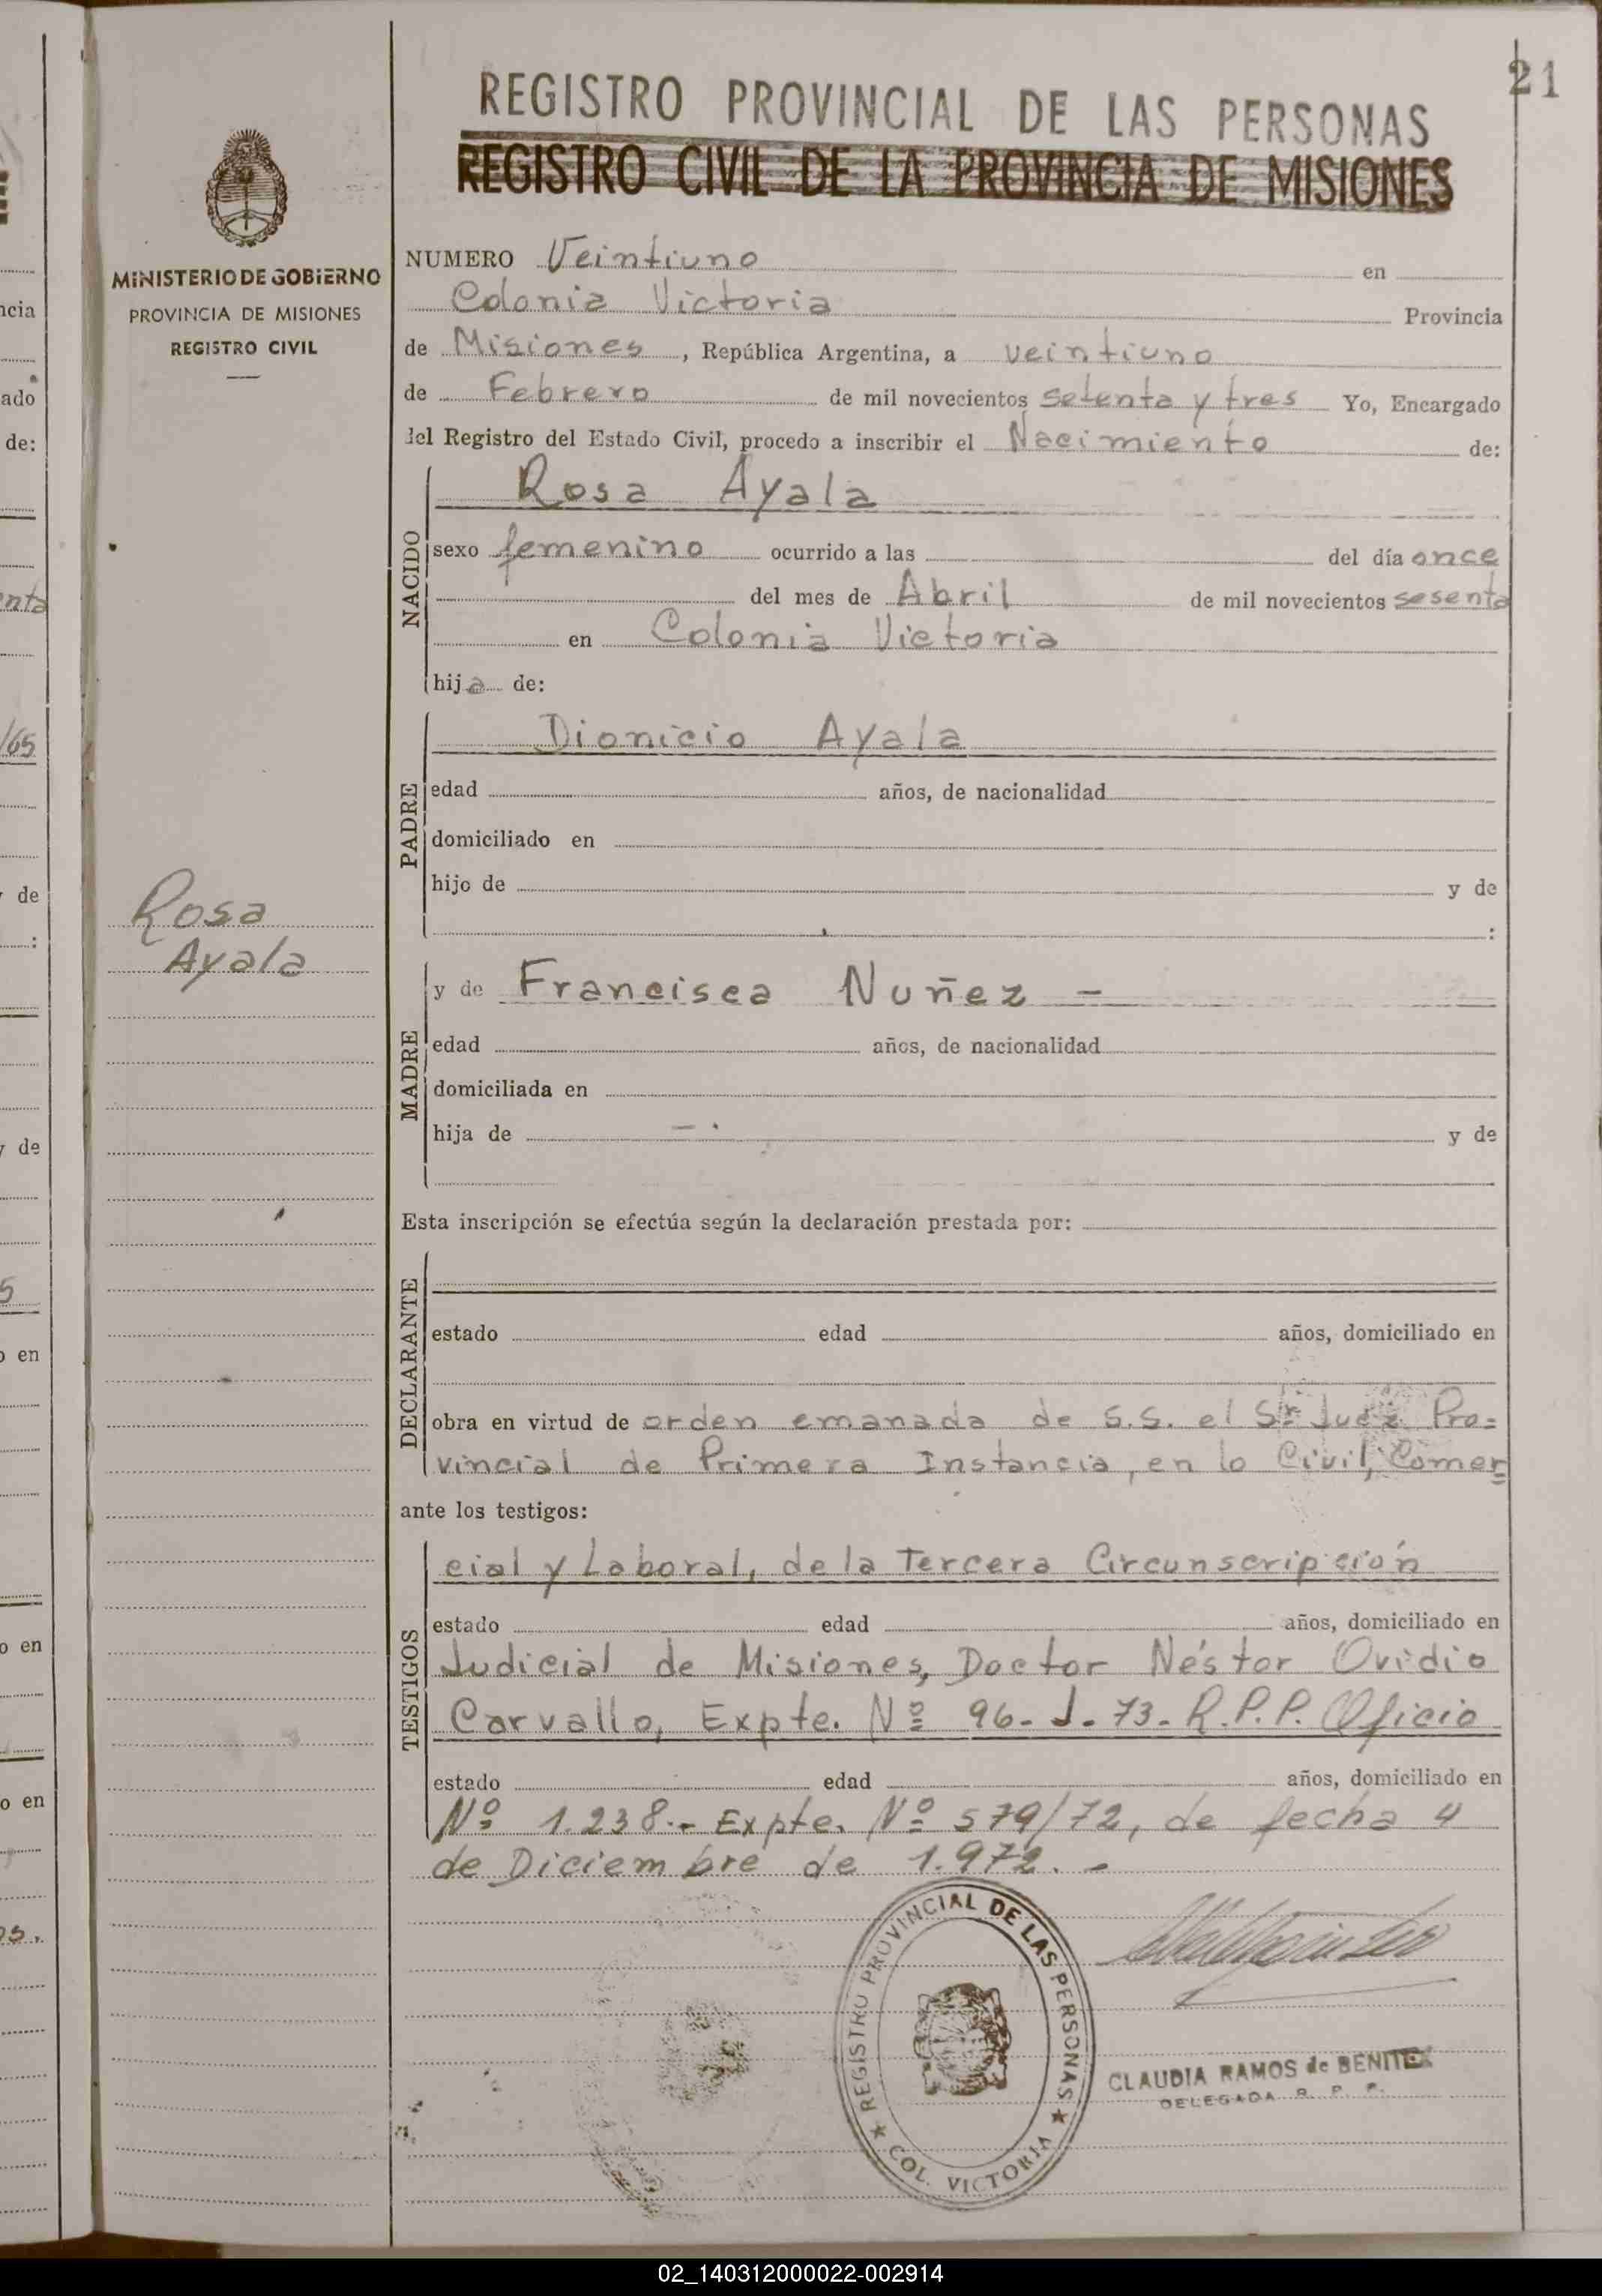 21
REGISTRO PROVINCIAL DE LAS PERSONAS
REGISTRO CIVIL DE LA PROVINCIA DE MISIONES
MINISTERIO DE GOBIERNO
PROVINCIA DE MISIONES
REGISTRO CIVIL
Rosa
Ayala
NUMERO Veintiuno en
Colonia Victoria Provincia
de Misiones, República Argentina, a veintiuno
de Febrero de mil novecientos setenta y tres Yo, Encargado
del Registro del Estado Civil, procedo a inscribir el Nacimiento de:
NACIDO
Rosa Ayala
sexo femenino ocurrido a las del día once
del mes de Abril de mil novecientos sesenta
en Colonia Victoria
hija de:
PADRE
Dionicio Ayala
edad años, de nacionalidad
domiciliado en
hijo de y de
:
MADRE
y de Francisca Nuñez -
edad años, de nacionalidad
domiciliada en
hija de y de
Esta inscripción se efectúa según la declaración prestada por:
DECLARANTE
estado edad años, domiciliado en
obra en virtud de orden emanada de S.S. el Sr. Juez Pro=
vincial de Primera Instancia, en lo Civil, Comer=
ante los testigos:
TESTIGOS
cial y Laboral, de la Tercera Circunscripción
estado edad años, domiciliado en
Judicial de Misiones, Doctor Néstor Ovidio
Carvallo, Expte. Nº 96-J-73-R.P.P. Oficio
estado edad años, domiciliado en
Nº 1.238.- Expte. Nº 579/72, de fecha 4
de Diciembre de 1.972.-
REGISTRO PROVINCIAL DE LAS PERSONAS
COL. VICTORIA
CLAUDIA RAMOS de BENITEZ
DELEGADA R. P. P.
02_140312000022-002914